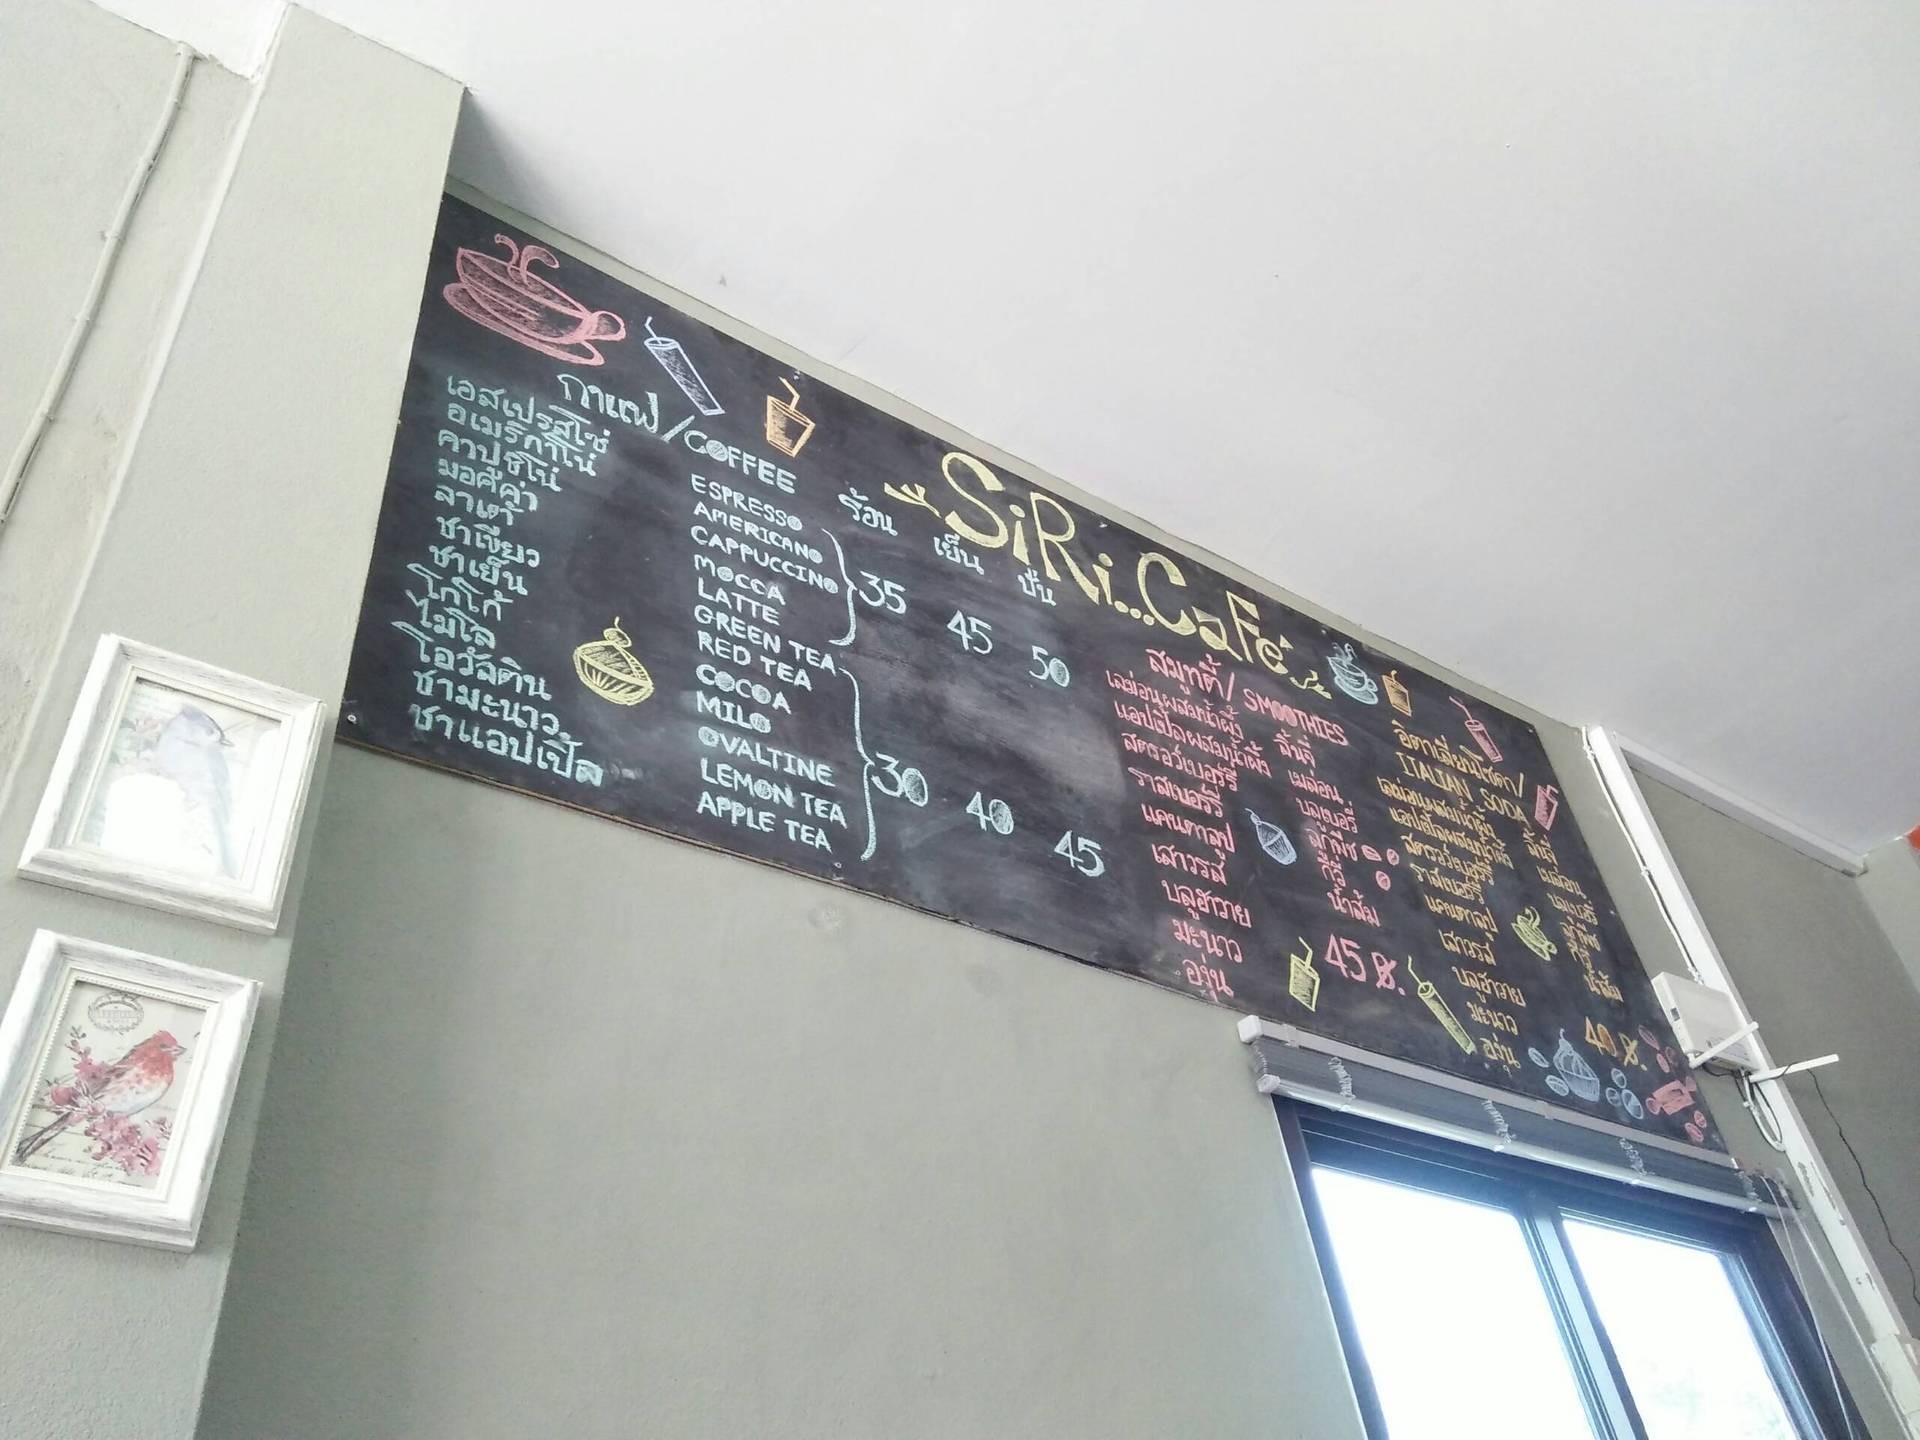 SiRi..CaFé
กาแฟ/COFFEE
ร้อน เย็น ปั่น
เอสเปรสโซ่ ESPRESSO
อเมริกาโน่ AMERICANO
คาปูชิโน่ CAPPUCCINO
มอคค่า MOCCA
ลาเต้ LATTE
35 45 50
ชาเขียว GREEN TEA
ชาเย็น RED TEA
โกโก้ COCOA
ไมโล MILO
โอวัลติน OVALTINE
ชามะนาว LEMON TEA
ชาแอปเปิ้ล APPLE TEA
30 40 45
สมูทตี้/SMOOTHIES
เลม่อนผสมน้ำผึ้ง ลิ้นจี่
แอปเปิ้ลผสมน้ำผึ้ง เมล่อน
สตรอว์เบอร์รี่ บลูเบอร์รี่
ราสเบอร์รี่
แคนตาลูป กีวี่
เสาวรส น้ำส้ม
บลูฮาวาย
มะนาว
องุ่น
45 ฿.
อิตาเลี่ยนโซดา/
ITALIAN SODA
เลม่อนผสมน้ำผึ้ง ลิ้นจี่
แอปเปิ้ลผสมน้ำผึ้ง เมล่อน
สตรอว์เบอร์รี่ บลูเบอร์รี่
ราสเบอร์รี่
แคนตาลูป กีวี่
เสาวรส น้ำส้ม
บลูฮาวาย
มะนาว
องุ่น
40 ฿.